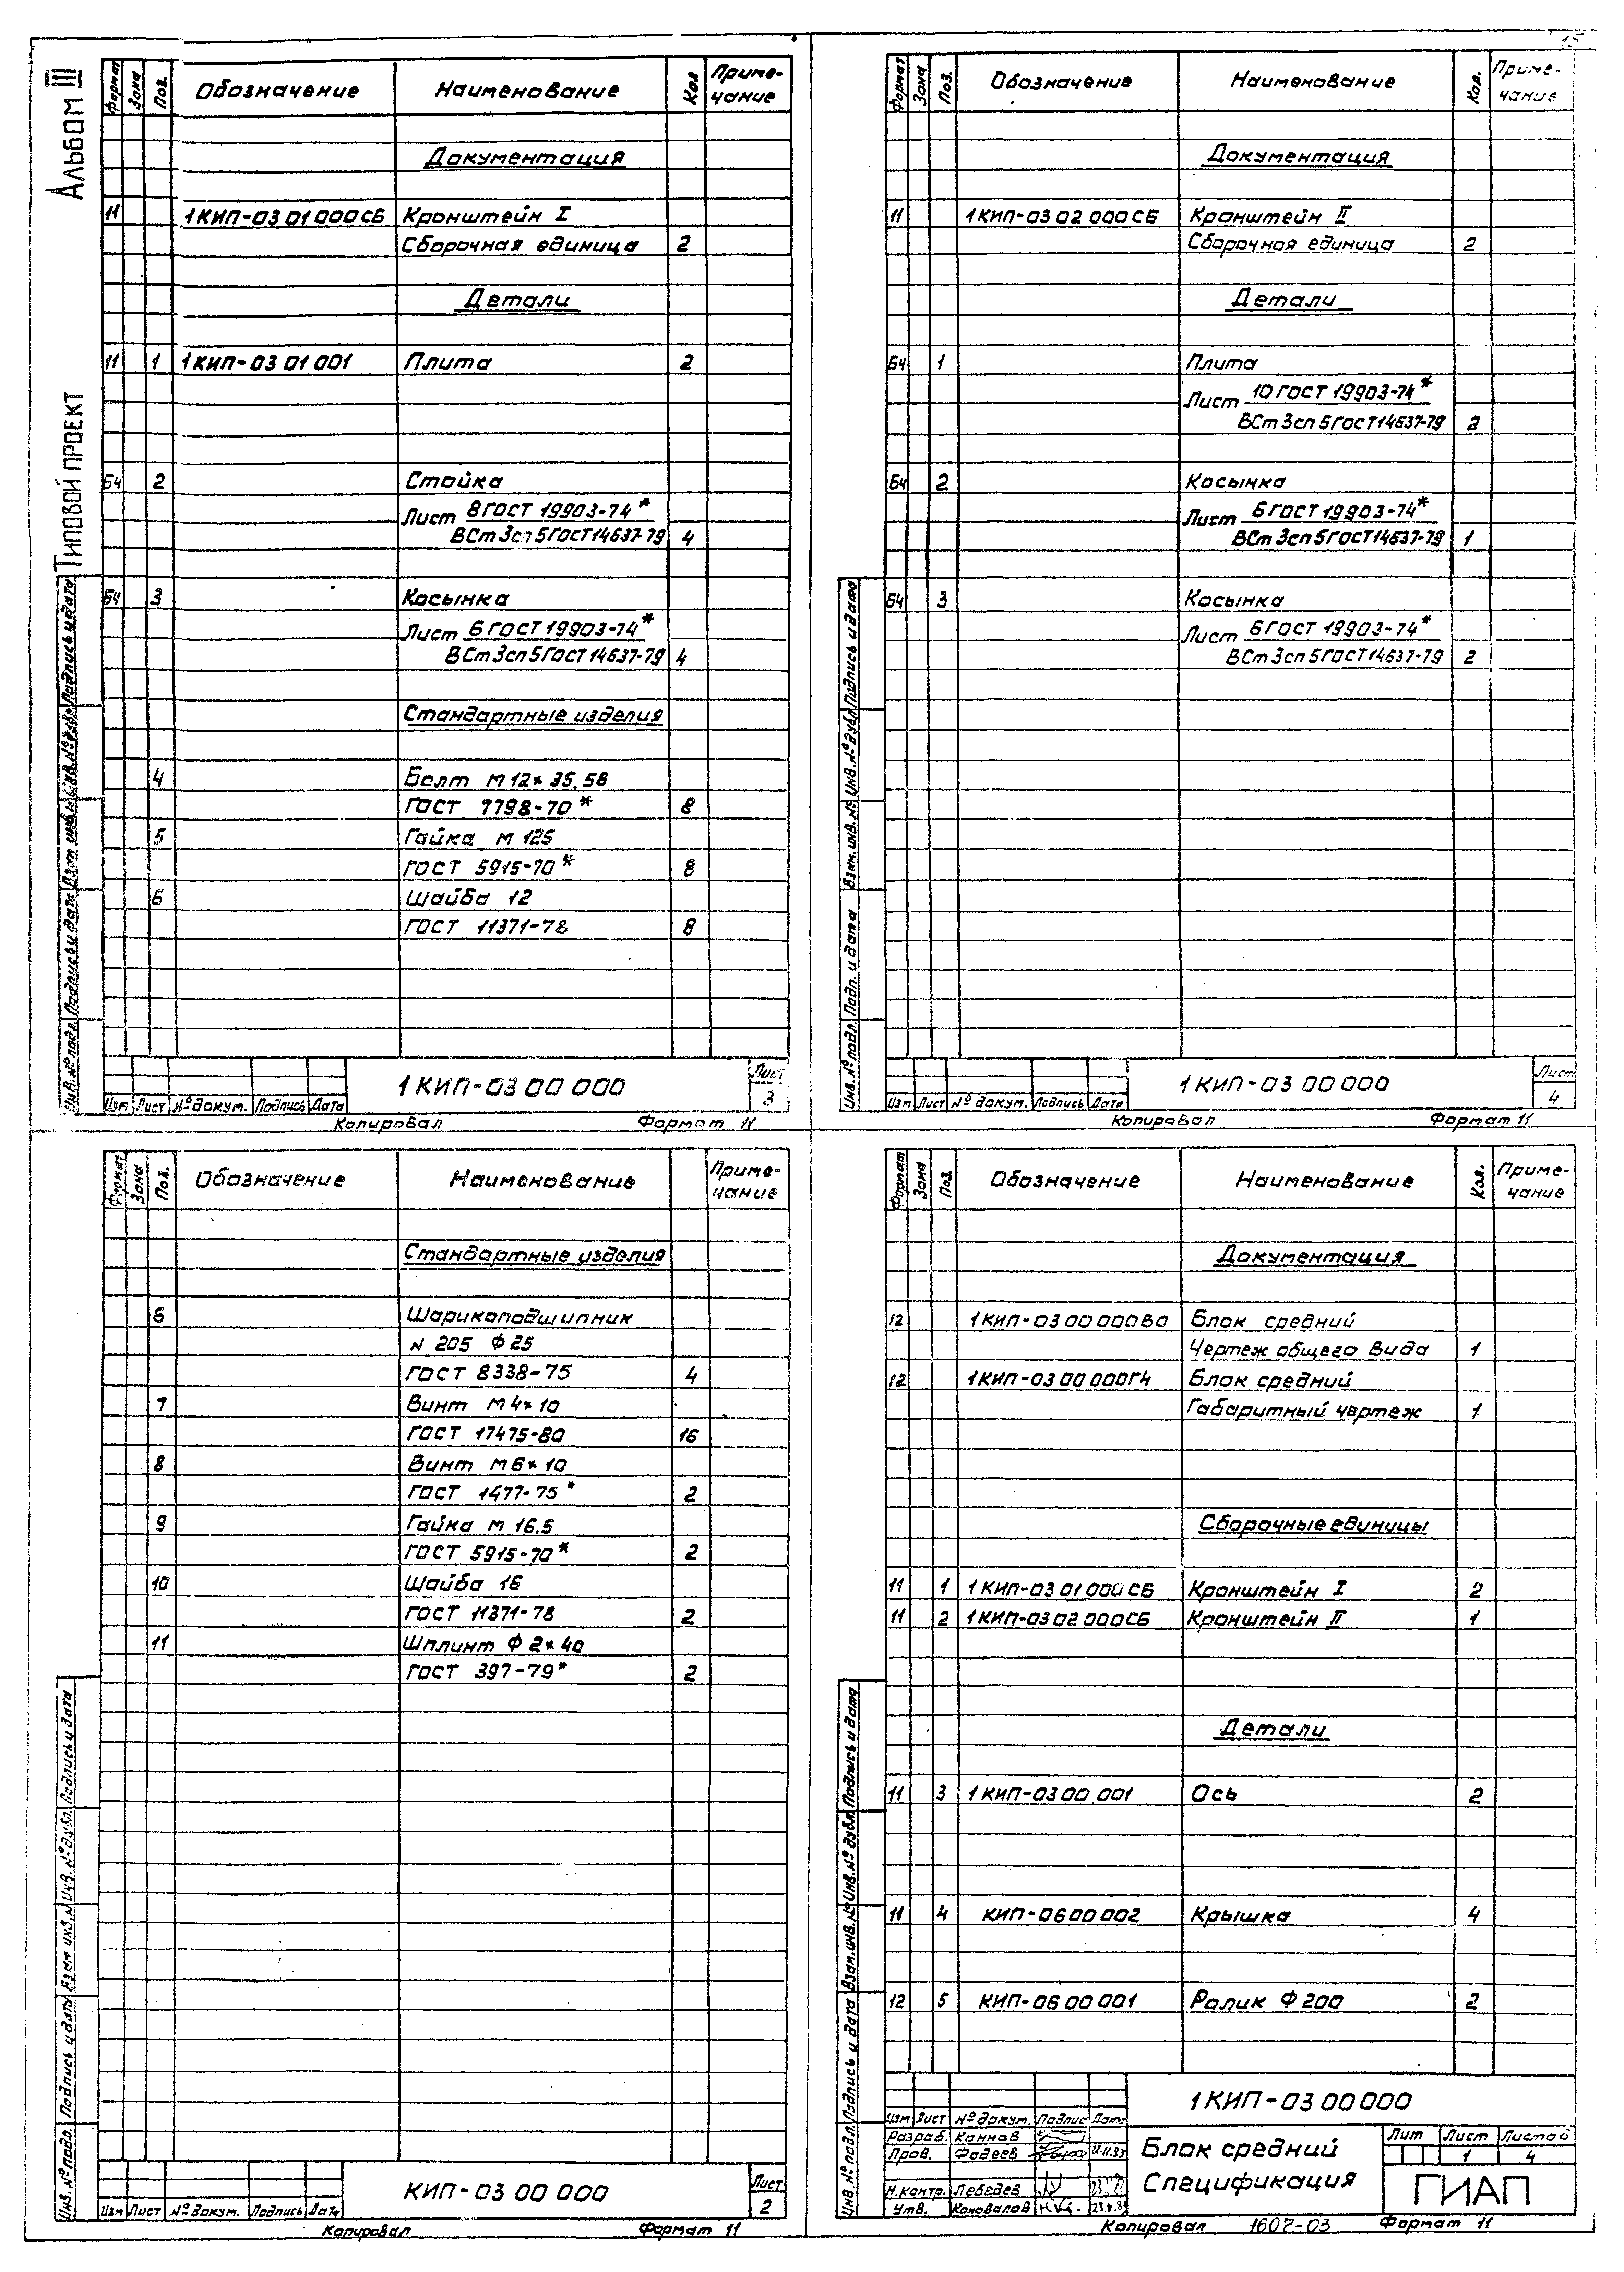 Альбом III
Типовой проект
15
Формат Зона Поз. Обозначение Наименование Кол Приме-чание
Документация
11 1КИП-03 01 000СБ Кронштейн I
Сборочная единица 2
Детали
11 1 1КИП-03 01 001 Плита 2
БЧ 2 Стойка
Лист 8 ГОСТ 19903-74*
ВСт3сп5 ГОСТ 14637-79 4
БЧ 3 Косынка
Лист 6 ГОСТ 19903-74*
ВСт3сп5 ГОСТ 14637-79 4
Стандартные изделия
4 Болт М12×35.58
ГОСТ 7798-70* 8
5 Гайка М 125
ГОСТ 5915-70* 8
6 Шайба 12
ГОСТ 11371-78 8
Инв. № подл. Подпись и дата Взам инв. № Инв. № дубл. Подпись и дата
1КИП-03 00 000
Лист
3
Изм Лист № докум. Подпись Дата
Копировал Формат 11
Формат Зона Поз. Обозначение Наименование Кол. Приме-чание
Документация
11 1КИП-03 02 000СБ Кронштейн II
Сборочная единица 2
Детали
БЧ 1 Плита
Лист 10 ГОСТ 19903-74*
ВСт3сп5 ГОСТ 14637-79 2
БЧ 2 Косынка
Лист 6 ГОСТ 19903-74*
ВСт3сп5 ГОСТ 14637-79 1
БЧ 3 Косынка
Лист 6 ГОСТ 19903-74*
ВСт3сп5 ГОСТ 14637-79 2
Инв. № подл. Подп. и дата Взам. инв. № Инв. № дубл. Подпись и дата
1КИП-03 00 000
Лист
4
Изм Лист № докум. Подпись Дата
Копировал Формат 11
Формат Зона Поз. Обозначение Наименование Приме-чание
Стандартные изделия
6 Шарикоподшипник
N 205 Ф25
ГОСТ 8338-75 4
7 Винт М4×10
ГОСТ 17475-80 16
8 Винт М6×10
ГОСТ 1477-75* 2
9 Гайка М 16.5
ГОСТ 5915-70* 2
10 Шайба 16
ГОСТ 11371-78 2
11 Шплинт Ф 2×40
ГОСТ 397-79* 2
Инв. № подл. Подпись и дата Взам инв. № Инв. № дубл. Подпись и дата
КИП-03 00 000
Лист
2
Изм Лист № докум. Подпись Дата
Копировал Формат 11
Формат Зона Поз. Обозначение Наименование Кол. Приме-чание
Документация
12 1КИП-03 00 000ВО Блок средний
Чертеж общего вида 1
12 1КИП-03 00 000ГЧ Блок средний
Габаритный чертеж 1
Сборочные единицы
11 1 1КИП-03 01 000СБ Кронштейн I 2
11 2 1КИП-03 02 000СБ Кронштейн II 1
Детали
11 3 1КИП-03 00 001 Ось 2
11 4 КИП-06 00 002 Крышка 4
12 5 КИП-06 00 001 Ролик Ф 200 2
Инв. № подл. Подпись и дата Взам. инв. № Инв. № дубл. Подпись и дата
1КИП-03 00 000
Изм Лист № докум. Подпис Дата
Разраб. Каннав
Пров. Фадеев 22.11.83
Н.контр. Лебедев
Утв. Коновалов
Блок средний
Спецификация
Лит Лист Листов
1 4
ГИАП
Копировал 1607-03 Формат 11